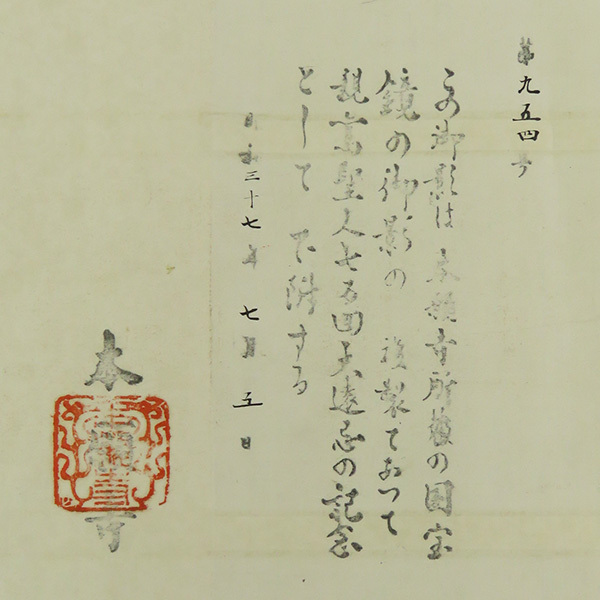 第九五四号
この御影は本願寺所蔵の国宝
鏡の御影の複製であつて
親鸞聖人七百回大遠忌の記念
として下附する
昭和三十七年七月五日
本願寺